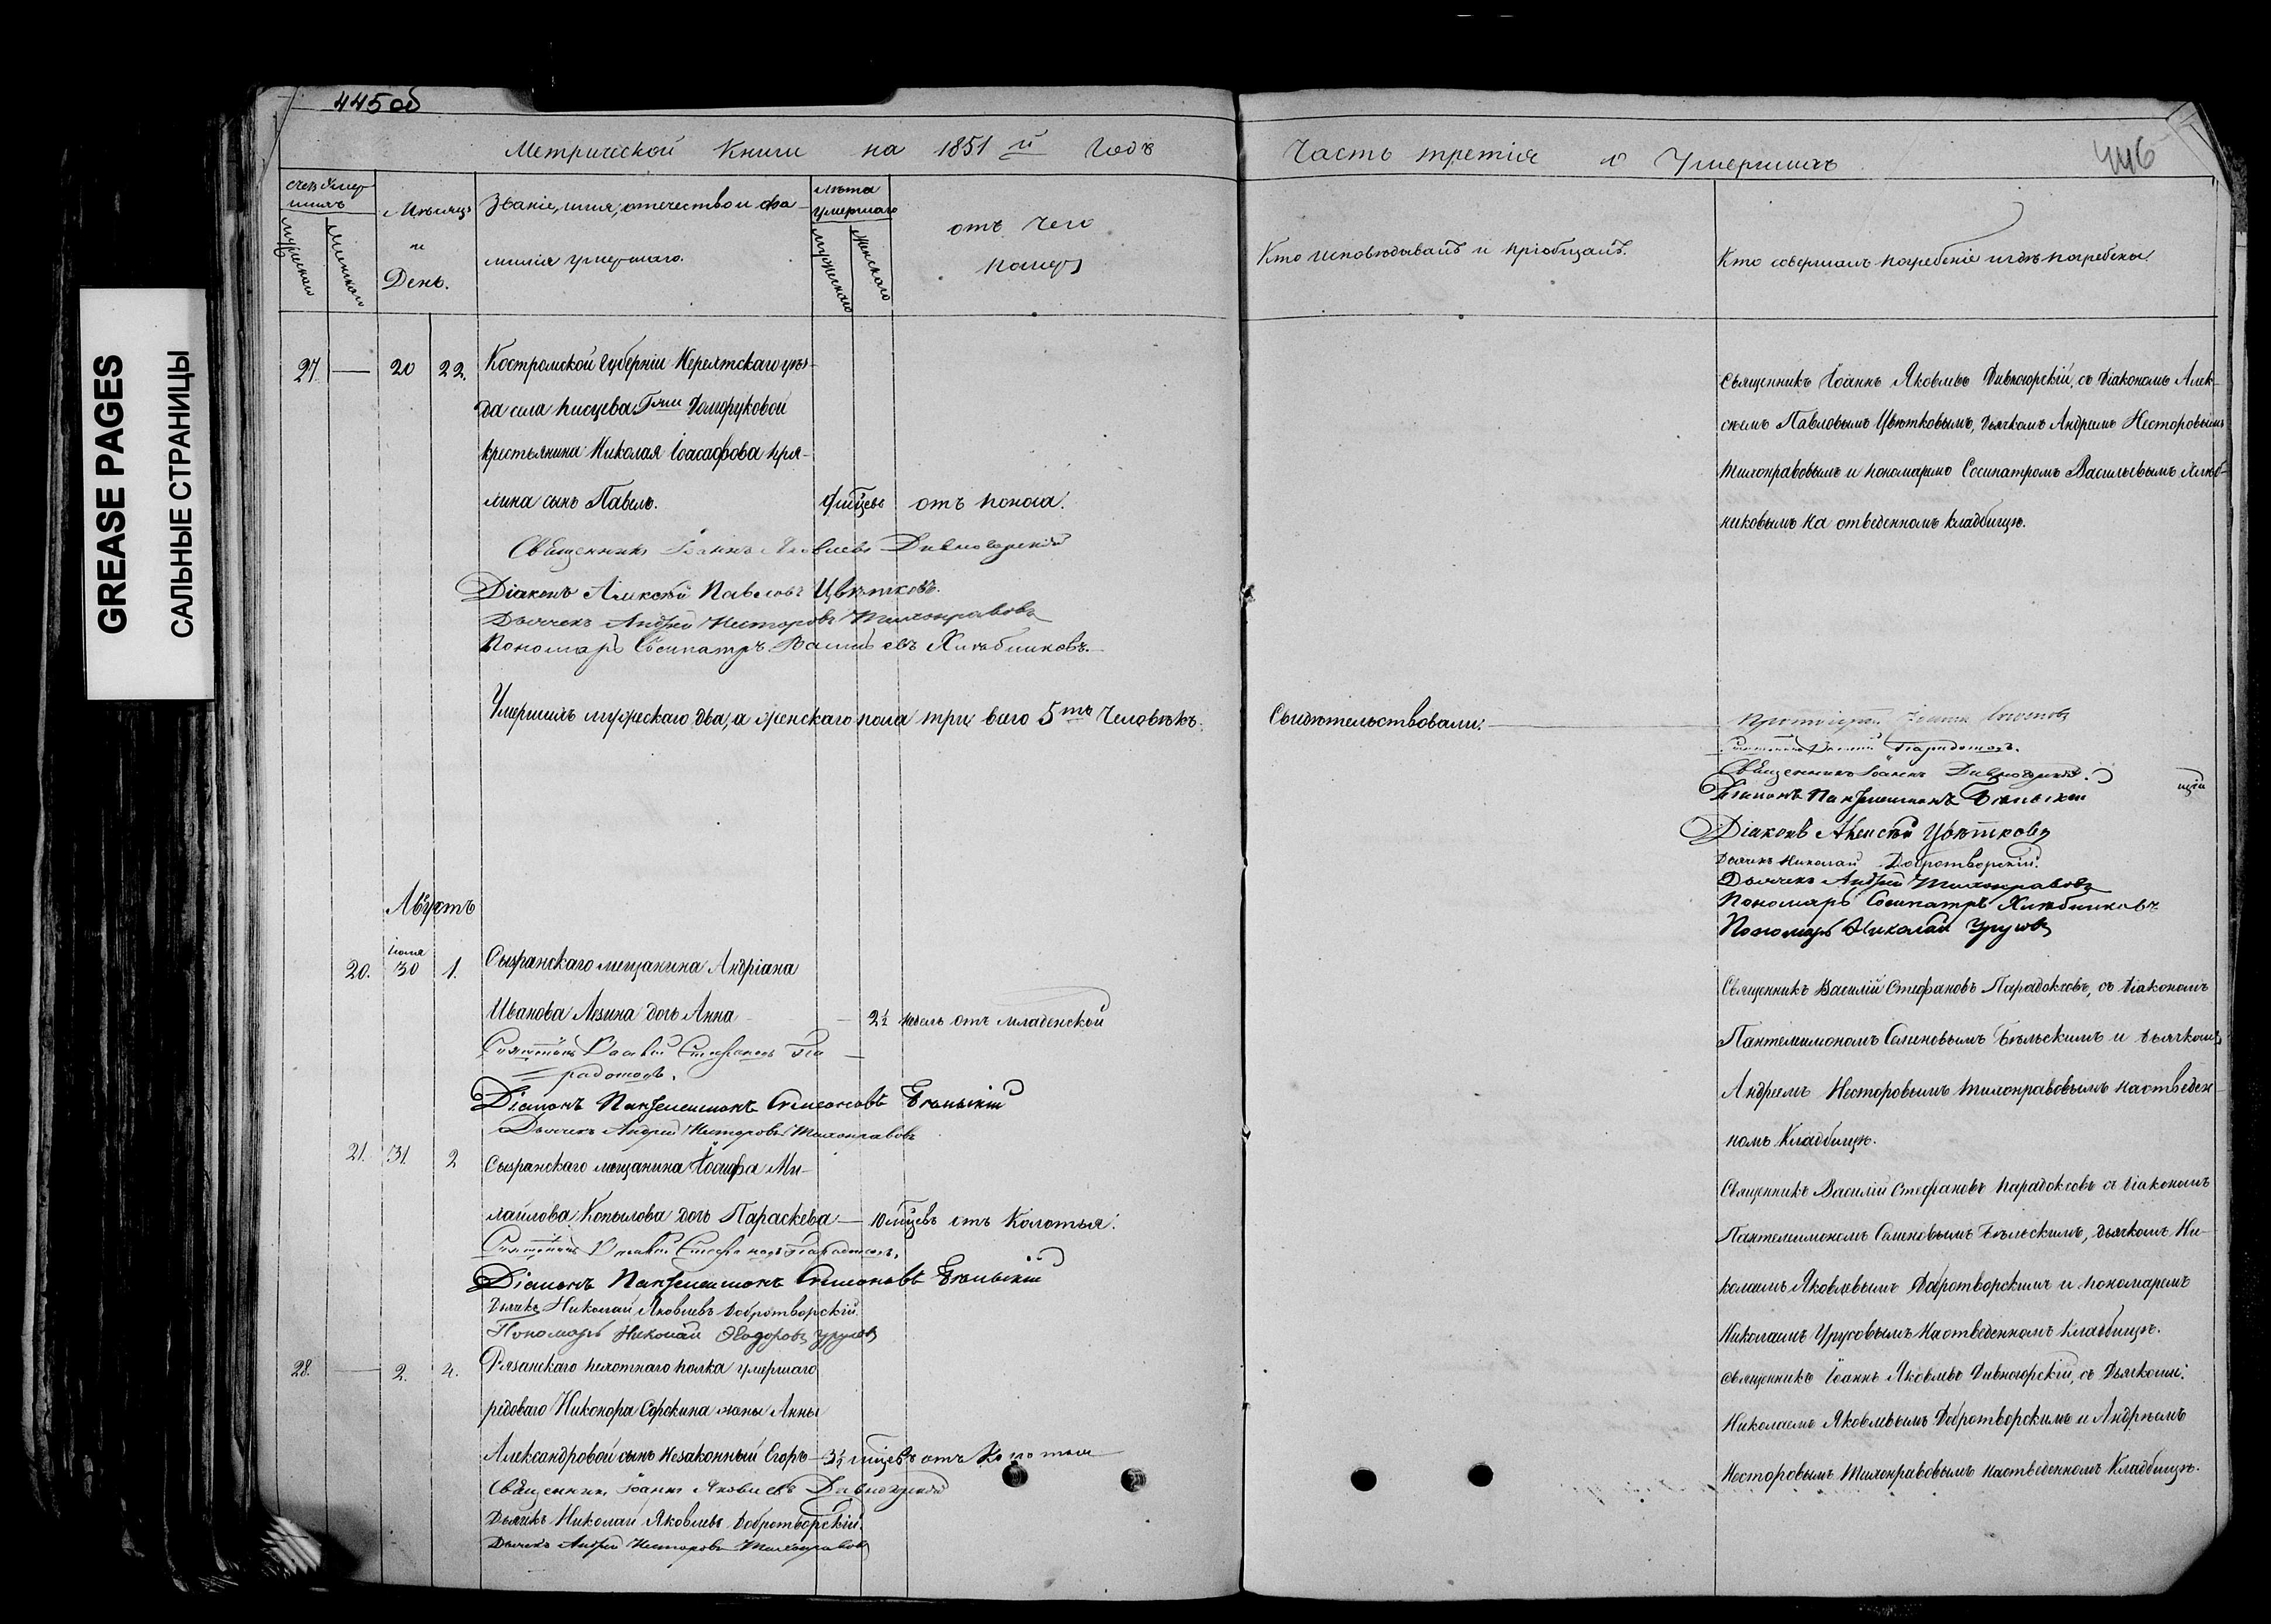 445об
Метрической Книги на 1851й Годъ
Часть третія о Умершихъ
446
GREASE PAGES
САЛЬНЫЕ СТРАНИЦЫ
счетъ умер-
шихъ
мужескаго
женскаго
Мѣсяцъ
и
День.
Званіе, имя, отечество и фа-
милія умершаго.
лѣта
умершаго
мужескаго
женскаго
отъ чего
померъ
Кто исповѣдывалъ и пріобщалъ.
Кто совершалъ погребеніе и гдѣ погребены.
27. — 20 22. Костромской Губерніи Нерехтскаго уѣз-
да села Писцева Гжи Долгоруковой
крестьянина Николая Іоасафова
лина сынъ Павелъ. отъ поноса.
Священникъ Іоаннъ Яковлевъ Дивногорскій
Діаконъ Алексѣй Павловъ Цвѣтковъ.
Дьячекъ Андрей Несторовъ Тихонравовъ
Пономарь Сосипатръ Васильевъ Хлѣбниковъ.
Священникъ Іоаннъ Яковлевъ Дивногорскій, съ Діакономъ Алек-
сѣемъ Павловымъ Цвѣтковымъ, Дьячкомъ Андреемъ Несторовымъ
Тихонравовымъ и пономаремъ Сосипатромъ Васильевымъ Хлѣб-
никовымъ на отведенномъ кладбищѣ.
Умершихъ мужескаго два, а женскаго пола три всего 5ть Человѣкъ.
Свидѣтельствовали:
Протоіерей Іоаннъ
Священникъ Василій Парадоксовъ.
Священникъ Іоаннъ Дивногорскій.
Діаконъ Пантелеимонъ Бѣльскій
Діаконъ Алексѣй Цвѣтковъ
Дьячекъ Николай Добротворскій.
Дьячекъ Андрей Тихонравовъ
Пономарь Сосипатръ Хлѣбниковъ
Пономарь Николай Урусовъ
Августъ
20. іюля 30 1. Сызранскаго мещанина Андріана
Иванова Лезина дочь Анна — 2½ недель отъ младенской
Священникъ Василій Стефановъ Па-
радоксовъ.
Діаконъ Пантелеимонъ Симеоновъ Бѣльскій
Дьячекъ Андрей Несторовъ Тихонравовъ
Священникъ Василій Стефановъ Парадоксовъ, съ Діакономъ
Пантелеимономъ Семеновымъ Бѣльскимъ и дьячкомъ
Андреемъ Несторовымъ Тихонравовымъ на отведен-
номъ Кладбищѣ.
21. 31. 2 Сызранскаго мещанина Іосифа Ми-
хайлова Копылова дочь Параскева — 10 мѣсцевъ отъ Колотья.
Священникъ Василій Стефановъ Парадоксовъ.
Діаконъ Пантелеимонъ Симеоновъ Бѣльскій
Дьячекъ Николай Яковлевъ Добротворскій
Пономарь Николай Ѳеодоровъ Урусовъ
Священникъ Василій Стефановъ Парадоксовъ съ діакономъ
Пантелеимономъ Семеновымъ Бѣльскимъ, дьячкомъ Ни-
колаемъ Яковлевымъ Добротворскимъ и пономаремъ
Николаемъ Урусовымъ на отведенномъ кладбищѣ.
28. — 2. 4. Рязанскаго пехотнаго полка умершаго
редоваго Никонора Сорокина жены Анны
Александровой сынъ незаконный Егоръ — 3½ мѣсцевъ отъ Колотья
Священникъ Іоаннъ Яковлевъ Дивногорскій
Дьячекъ Николай Яковлевъ Добротворскій.
Дьячекъ Андрей Несторовъ Тихонравовъ
Священникъ Іоаннъ Яковлевъ Дивногорскій, съ Дьячкомъ:
Николаемъ Яковлевымъ Добротворскимъ и Андреемъ
Несторовымъ Тихонравовымъ на отведенномъ Кладбищѣ.